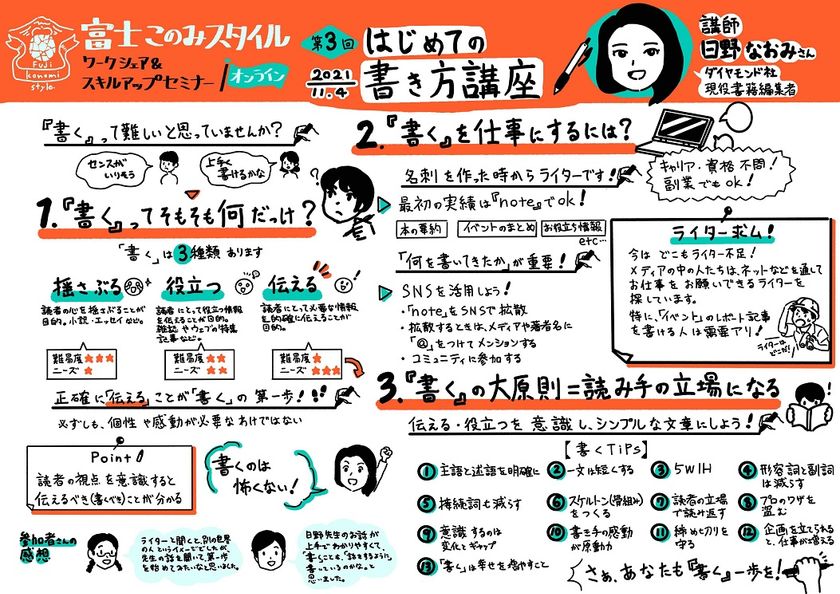 Fuji
konomi
style.
富士このみスタイル
ワークシェア&
スキルアップセミナー/オンライン
第3回
2021
11.4
はじめての
書き方講座
講師
日野なおみさん
ダイヤモンド社
現役書籍編集者
『書く』って難しいと思っていませんか?
センスが
いりそう
上手く
書けるかな
1.『書く』ってそもそも何だっけ?
「書く」は3種類あります
揺さぶる
読者の心を揺さぶることが
目的。小説・エッセイなど。
難易度★★★
ニーズ★
役立つ
読者にとって役立つ情報
を伝えることが目的。
雑誌やウェブの特集
記事など。
難易度★★
ニーズ★★
伝える
読者にとって必要な情報
を的確に伝えることが
目的。
難易度★
ニーズ★★★
正確に「伝える」ことが「書く」の第一歩!
必ずしも、個性や感動が必要なわけではない
Point
読者の視点を意識すると
伝えるべき(書くべき)ことが分かる
書くのは
怖くない!
参加者さんの
感想
ライターと聞くと、別の世界
の人というイメージでしたが、
先生の話を聞いて、第一歩
を始めてみたいなと思いました。
日野先生のお話が
上手でわかりやすくて、
思いました。
2.『書く』を仕事にするには?
名刺を作った時からライターです!
キャリア・資格不問!
副業でもok!
最初の実績は『note』でok!
本の要約
イベントのまとめ
お役立ち情報
etc…
「何を書いてきたか」が重要!
SNSを活用しよう!
・「note」をSNSで拡散
・拡散するときは、メディアや著者名に
「@」をつけてメンションする
・コミュニティに参加する
ライター求ム!
今はどこもライター不足!
メディアの中の人たちは、ネットなどを通して
お仕事をお願いできるライターを
探しています。
特に、「イベント」のレポート記事
を書ける人は需要アリ!
ライターは
どこだ!
3.『書く』の大原則=読み手の立場になる
伝える・役立つを意識し、シンプルな文章にしよう!
【書くTiPs】
①主語と述語を明確に
②一文は短くする
③5W1H
④形容詞と副詞
は減らす
⑤接続詞も減らす
⑥スケルトン(骨組み)
をつくる
⑦読者の立場
で読み返す
⑧プロのワザを
盗む
⑨意識するのは
変化とギャップ
⑩書き手の感動
が原動力
⑪締め切りを
守る
⑫企画を立てられる
と、仕事が増える
⑬「書く」は幸せを増やすこと
さぁ、あなたも『書く』一歩を!